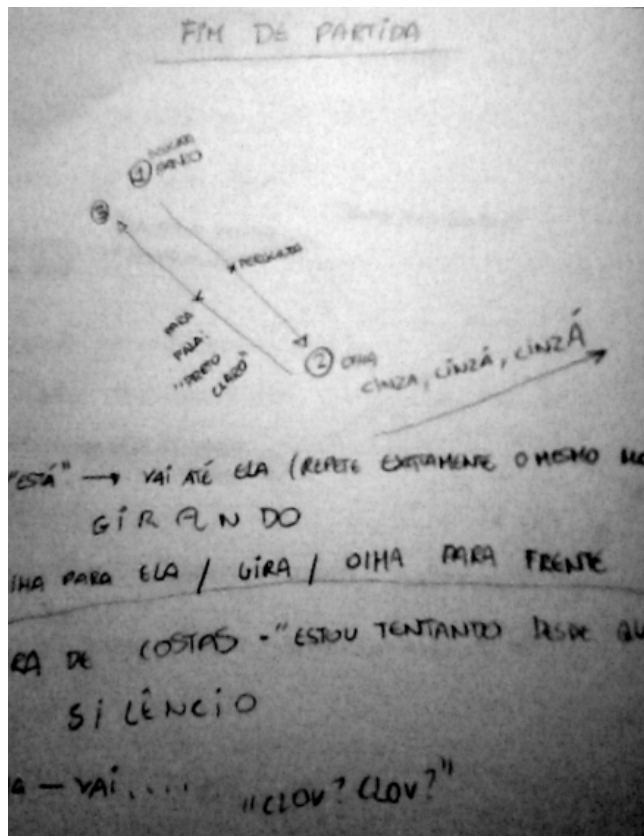 FIM DE PARTIDA
1
3
PERGUNTA
PARA
FALA:
"PRETO
CLARO"
2 OLHA
CINZA, CINZÁ, CINZÁ
"ESTÁ" → VAI ATÉ ELA (REPETE EXATAMENTE O MESMO
GIRANDO
LHA PARA ELA / GIRA / OLHA PARA FRENTE
RA DE COSTAS - "ESTOU TENTANDO DESDE QU
SILÊNCIO
A — VAI.... "CLOV? CLOV?"